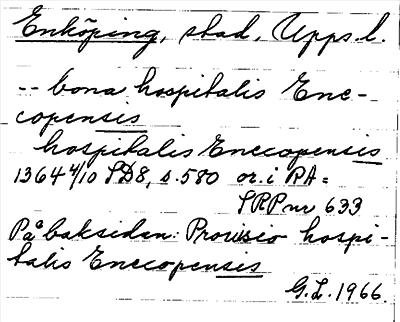 Enköping, stad, Upps.l.
-- bona hospitalis Enc-
copensis
hospitalis Enccopensis
1364 4/10 SD8, s.580 or. i RA =
SRP nr 633
På baksidan: Provisio hospi-
talis Enccopensis
G.L. 1966.